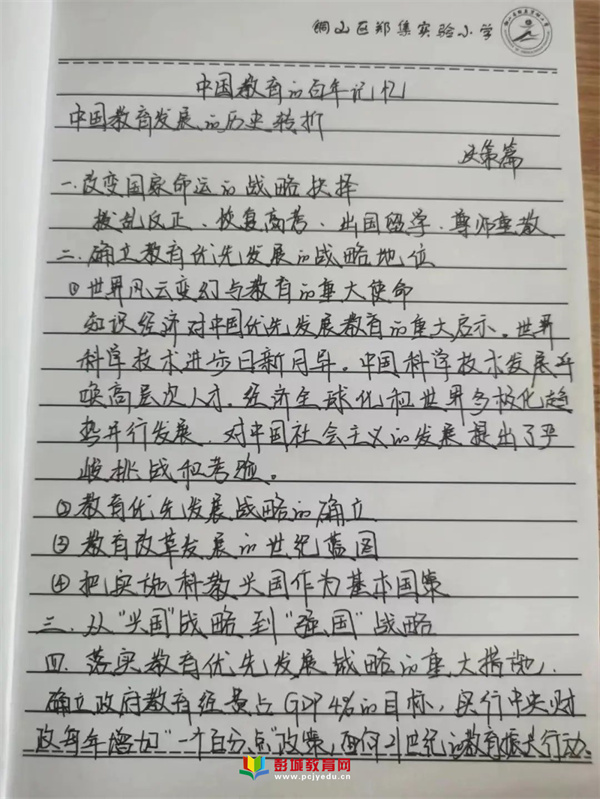 铜山区郑集实验小学
中国教育的百年记忆
中国教育发展的历史转折
决策篇
一.改变国家命运的战略抉择
拨乱反正、恢复高考、出国留学、尊师重教
二.确立教育优先发展的战略地位
①世界风云变幻与教育的重大使命
知识经济对中国优先发展教育的重大启示。世界
科学技术进步日新月异。中国科学技术发展呼
唤高层次人才.经济全球化和世界多极化趋
势并行发展.对中国社会主义的发展提出了严
峻挑战和考验。
②教育优先发展战略的确立
③教育改革发展的世纪蓝图
④把实施科教兴国作为基本国策
三.从"兴国"战略到"强国"战略
四.落实教育优先发展战略的重大措施.
确立政府教育经费占GDP4%的目标,实行中央财
政每年增加"一个百分点"政策,面向21世纪的教育振兴行动.
彭城教育网
www.pcjyedu.cn